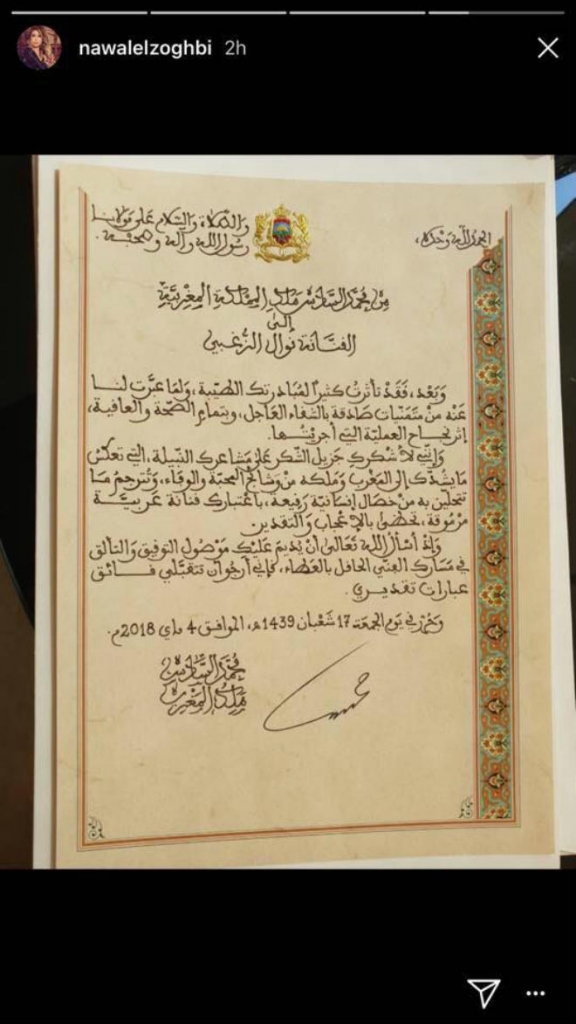 nawalelzoghbi 2h
الحمد لله وحده،
والصلاة والسلام على مولانا
رسول الله وآله وصحبه.
من محمد السادس ملك المملكة المغربية
إلى
الفنانة نوال الزغبي
وَبَعْد، فَقَدْ تأثرتُ كثيرًا لمُبادرتك الطيّبة، ولما عبّرتِ لنا
عَنْه منْ متمنيات صَادقة بالشفاء العَاجل، وبتمام الصّحّة والعافية،
إثر نجاح العمليّة التي أجريْتُها.
وَإنّني لأشكركِ جَزيل الشكر عَلى مشاعرك النّبيلة، التي تعكسُ
مَا يشدّك إلى المَغْرب وَملكه منْ وشائج المحبّة والوفاء، وتُترجمُ مَا
تتحلين به منْ خصال إنسَانيّة رَفيعة، باعْتبارك فنانة عَربيَّة
مرْمُوقة، تحْظَى بالإعْجاب والتقدير.
وَإذْ أسْألُ الله تَعَالى أنْ يُديمَ عَليْك مَوْصُول التوفيق والتألق
في مَسَارك الفنّي الحافل بالعَطاء، فإنّي أرجُو أنْ تتقبَّلي فَائق
عبارات تقديري.
وَحُرّرَ في يَوم الجمعَة 17 شَعْبان 1439هـ، الموافق 4 ماي 2018م.
محمد السادس
ملك المغرب